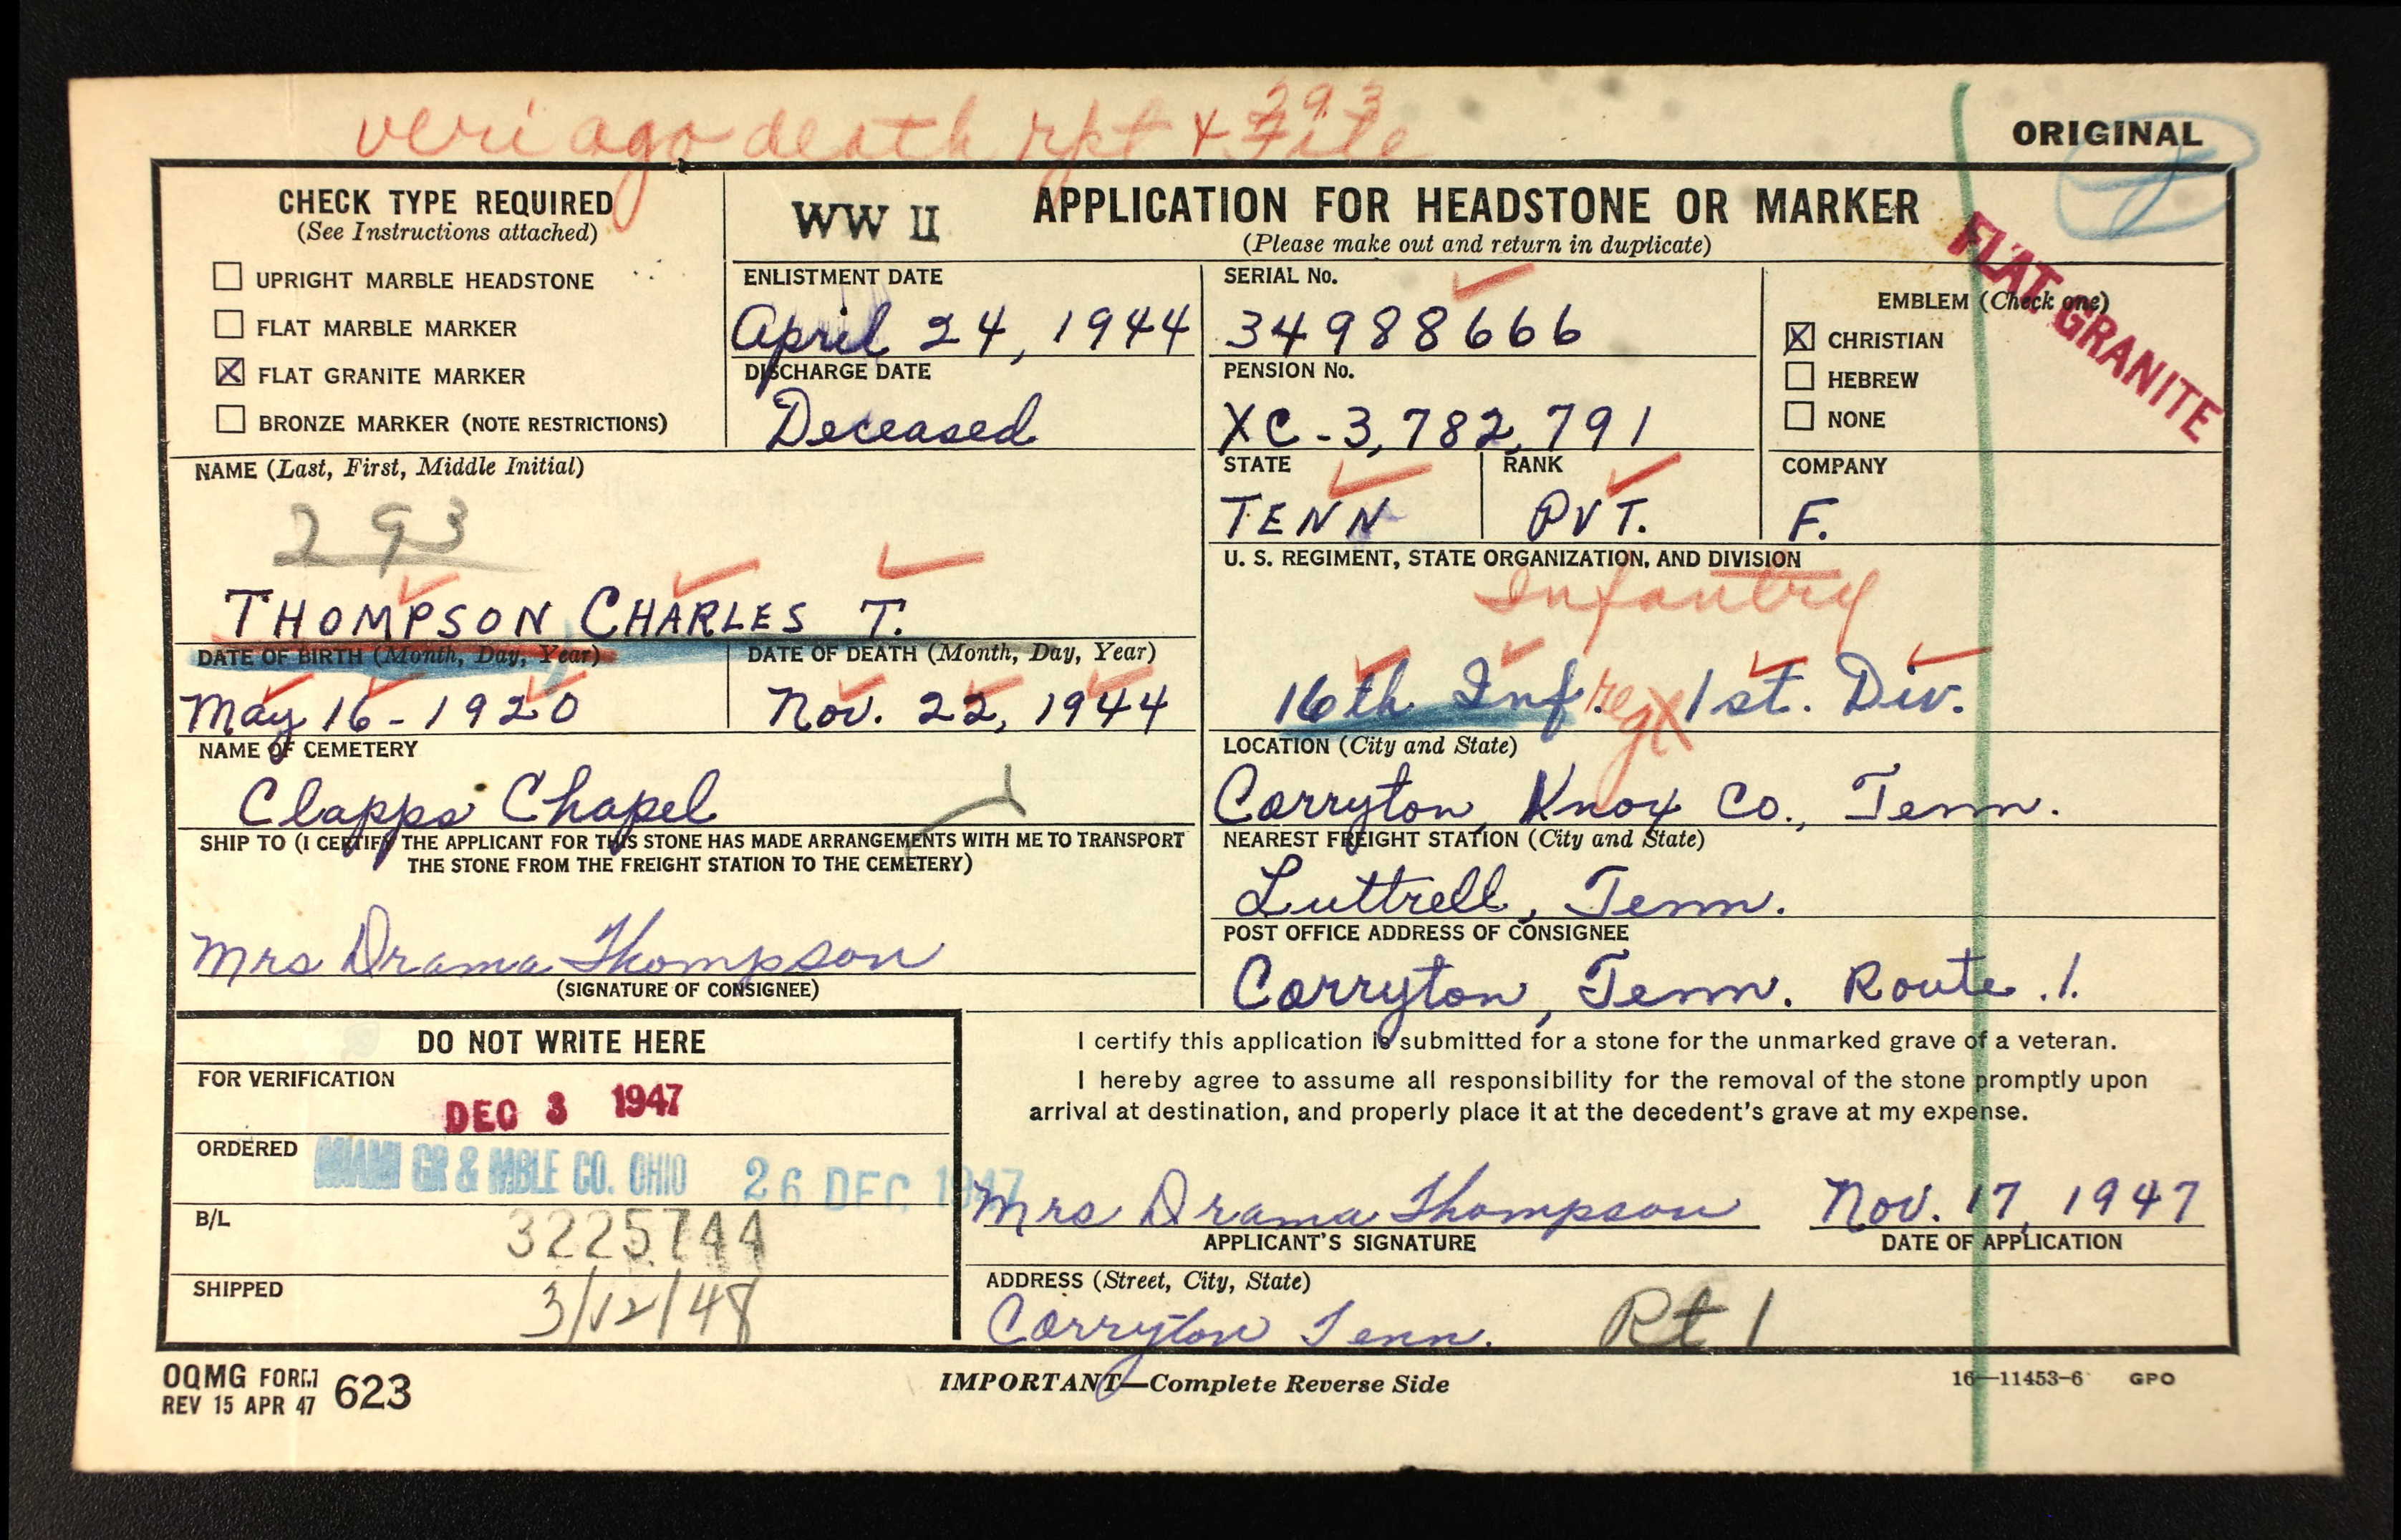 veri ago death rpt & File
293
ORIGINAL
CHECK TYPE REQUIRED
(See Instructions attached)
☐ UPRIGHT MARBLE HEADSTONE
☐ FLAT MARBLE MARKER
☒ FLAT GRANITE MARKER
☐ BRONZE MARKER (NOTE RESTRICTIONS)
WW II
APPLICATION FOR HEADSTONE OR MARKER
(Please make out and return in duplicate)
ENLISTMENT DATE
April 24, 1944
DISCHARGE DATE
Deceased
SERIAL No.
34988666
PENSION No.
XC-3,782,791
EMBLEM (Check one)
☒ CHRISTIAN
☐ HEBREW
☐ NONE
FLAT GRANITE
NAME (Last, First, Middle Initial)
293
THOMPSON, CHARLES T.
STATE
TENN
RANK
PVT.
COMPANY
F.
U. S. REGIMENT, STATE ORGANIZATION, AND DIVISION
Infantry
16th Inf. regt 1st. Div.
DATE OF BIRTH (Month, Day, Year)
May 16-1920
DATE OF DEATH (Month, Day, Year)
Nov. 22, 1944
NAME OF CEMETERY
Clapps Chapel
LOCATION (City and State)
Corryton, Knox Co., Tenn.
SHIP TO (I CERTIFY THE APPLICANT FOR THIS STONE HAS MADE ARRANGEMENTS WITH ME TO TRANSPORT
THE STONE FROM THE FREIGHT STATION TO THE CEMETERY)
Mrs Drama Thompson
(SIGNATURE OF CONSIGNEE)
NEAREST FREIGHT STATION (City and State)
Luttrell, Tenn.
POST OFFICE ADDRESS OF CONSIGNEE
Corryton, Tenn. Route .1.
DO NOT WRITE HERE
FOR VERIFICATION
DEC 3 1947
ORDERED
MIAMI GR & MBLE CO. OHIO 26 DEC 1947
B/L
3225744
SHIPPED
3/12/48
I certify this application is submitted for a stone for the unmarked grave of a veteran.
I hereby agree to assume all responsibility for the removal of the stone promptly upon
arrival at destination, and properly place it at the decedent's grave at my expense.
Mrs Drama Thompson Nov. 17, 1947
APPLICANT'S SIGNATURE DATE OF APPLICATION
ADDRESS (Street, City, State)
Corryton Tenn. Rt 1
OQMG FORM 623
REV 15 APR 47
IMPORTANT—Complete Reverse Side
16—11453-6 GPO